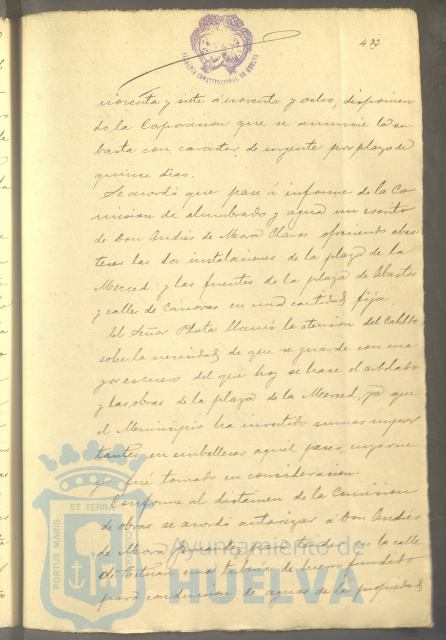 423
ALCALDIA CONSTITUCIONAL DE HUELVA
noventa y siete á noventa y ocho, disponien
do la Corporacion que se anuncie la su
basta con caracter de urgente por plazo de
quince dias.
Se acordó que pase á informe de la Co
mision de alumbrado y agua un escrito
de Don Andrés de Mora Claros ofreciendo abas
tecer las dos instalaciones de la plaza de la
Merced y las fuentes de la plaza de Abastos
y calle de Cánovas en una cantidad fija.
El Señor Plata llamó la atencion del Cabildo
sobre la necesidad de que se guarde con ma
yor esmero del que hoy se hace el arbolado
y las obras de la plaza de la Merced, ya que
el Municipio ha invertido sumas impor
tantes en embellecer aquel paseo, cuyo rue
go fué tomado en consideracion.
Conforme al dictamen de la Comision
de obras se acordó autorizar á Don Andrés
de Mora para tender en la calle
de una tuberia de hierro fundido
para conduccion de aguas de la propiedad
PORTUS MARIS ET TERRAE
Ayuntamiento de
HUELVA